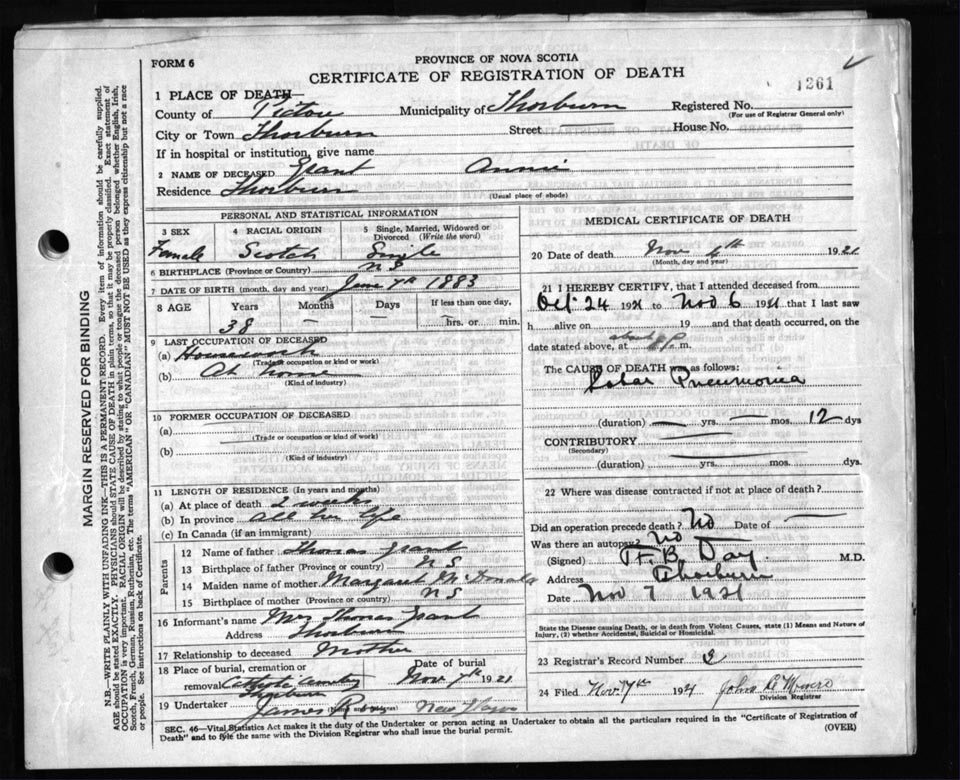 FORM 6
PROVINCE OF NOVA SCOTIA
CERTIFICATE OF REGISTRATION OF DEATH
1261
1 PLACE OF DEATH
County of Pictou Municipality of Thorburn Registered No.
(For use of Registrar General only)
City or Town Thorburn Street — House No.
If in hospital or institution, give name
2 NAME OF DECEASED Grant Annie
Residence Thorburn
(Usual place of abode)
PERSONAL AND STATISTICAL INFORMATION
3 SEX 4 RACIAL ORIGIN 5 Single, Married, Widowed or Divorced (Write the word)
Female Scotch Single
6 BIRTHPLACE (Province or Country) N S
7 DATE OF BIRTH (month, day and year) June 7th 1883
8 AGE Years Months Days If less than one day,
38 — — — hrs. or min.
9 LAST OCCUPATION OF DECEASED
(a) Housework
(Trade or occupation or kind of work)
(b) At home
(Kind of industry)
10 FORMER OCCUPATION OF DECEASED
(a)
(Trade or occupation or kind of work)
(b)
(Kind of industry)
11 LENGTH OF RESIDENCE (In years and months)
(a) At place of death 2 weeks
(b) In province All her life
(c) In Canada (if an immigrant)
Parents
12 Name of father Thomas Grant
13 Birthplace of father (Province or country) N S
14 Maiden name of mother Margaret McDonald
15 Birthplace of mother (Province or country) N S
16 Informant's name Mrs Thomas Grant
Address Thorburn
17 Relationship to deceased Mother
18 Place of burial, cremation or removal Thorburn Date of burial Nov 7th 1921
19 Undertaker James New
MEDICAL CERTIFICATE OF DEATH
20 Date of death Nov 4th 1921
(Month, day and year)
21 I HEREBY CERTIFY, that I attended deceased from
Oct 24 1921 to Nov 6 1921 that I last saw
h alive on 19 and that death occurred, on the
date stated above, at about m.
The CAUSE OF DEATH was as follows:
Lobar Pneumonia
(duration) — yrs. — mos. 12 dys
CONTRIBUTORY
(Secondary)
(duration) yrs. mos. dys.
22 Where was disease contracted if not at place of death?
Did an operation precede death? No Date of —
Was there an autopsy? No
(Signed) H. B. Day M.D.
Address Thorburn
Date Nov 7 1921
State the Disease causing Death, or in death from Violent Causes, state (1) Means and Nature of Injury, (2) whether Accidental, Suicidal or Homicidal.
23 Registrar's Record Number 3
24 Filed Nov 7th 1921 John Munro
Division Registrar
SEC. 46—Vital Statistics Act makes it the duty of the Undertaker or person acting as Undertaker to obtain all the particulars required in the "Certificate of Registration of
Death" and to file the same with the Division Registrar who shall issue the burial permit. (OVER)
MARGIN RESERVED FOR BINDING
N.B.—WRITE PLAINLY WITH UNFADING INK—THIS IS A PERMANENT RECORD. Every item of information should be carefully supplied.
AGE should be stated EXACTLY. PHYSICIANS should STATE CAUSE OF DEATH in plain terms, so that it may be properly classified. Exact statement of
OCCUPATION is very important. RACIAL ORIGIN will be described by stating to what people or tongue the deceased person belonged whether English, Irish,
Scotch, French, German, Russian, Ruthenian, etc. The terms "AMERICAN" or "CANADIAN" MUST NOT BE USED as they express citizenship but not a race
or people. See instructions on back of Certificate.